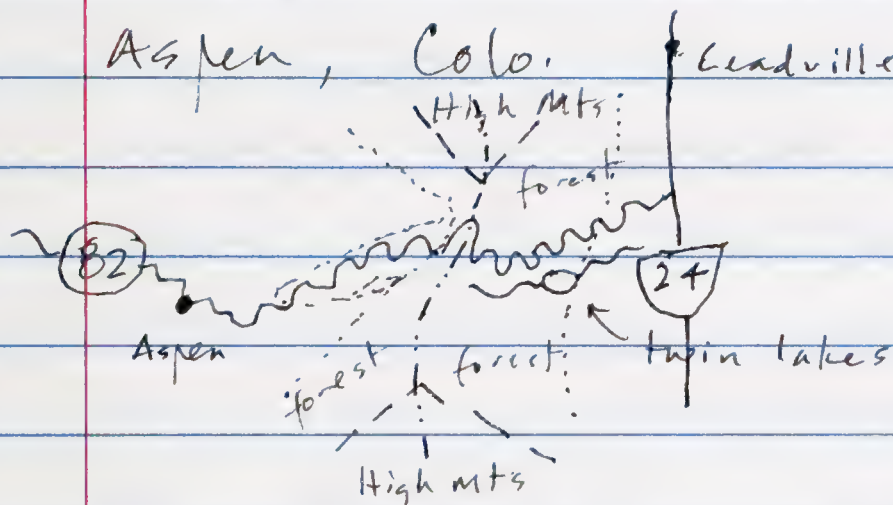 Aspen, Colo.
Leadville
High Mts
forest
82
24
Aspen
forest
forest
twin lakes
High mts